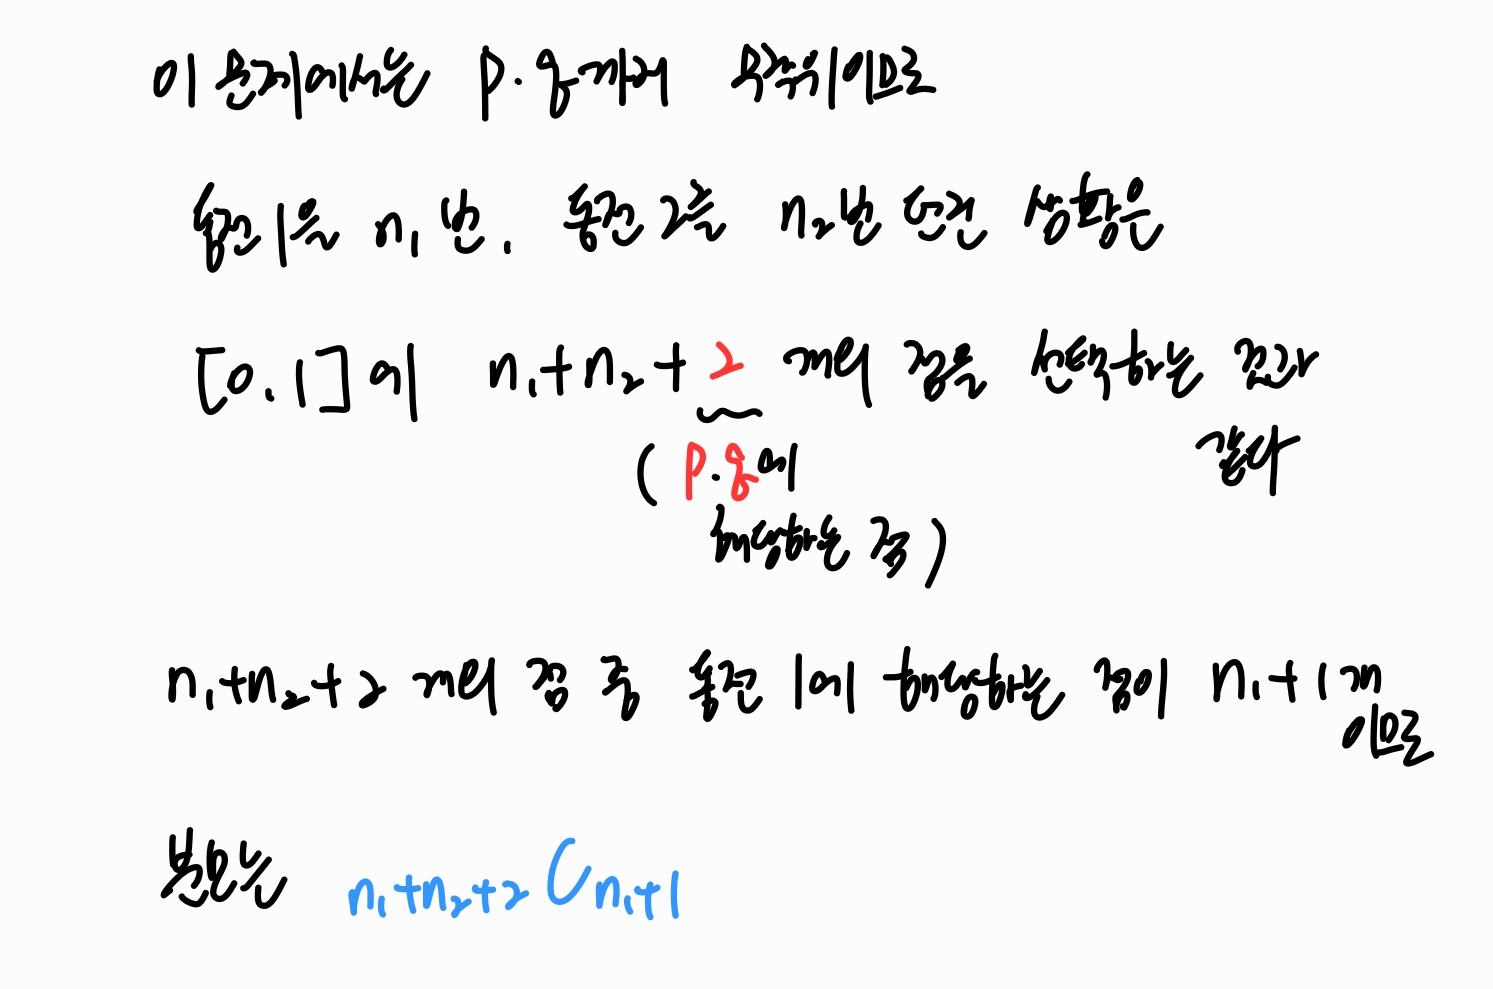 이 문제에서는 p.q까지 무작위이므로
동전1을 n₁번, 동전2를 n₂번 던진 상황은
[0,1]에 n₁+n₂+2개의 점을 선택하는 것과
같다
(p.q에
해당하는 점)
n₁+n₂+2개의 점 중 동전1에 해당하는 점이 n₁+1개
이므로
분모는 n₁+n₂+2 C n₁+1